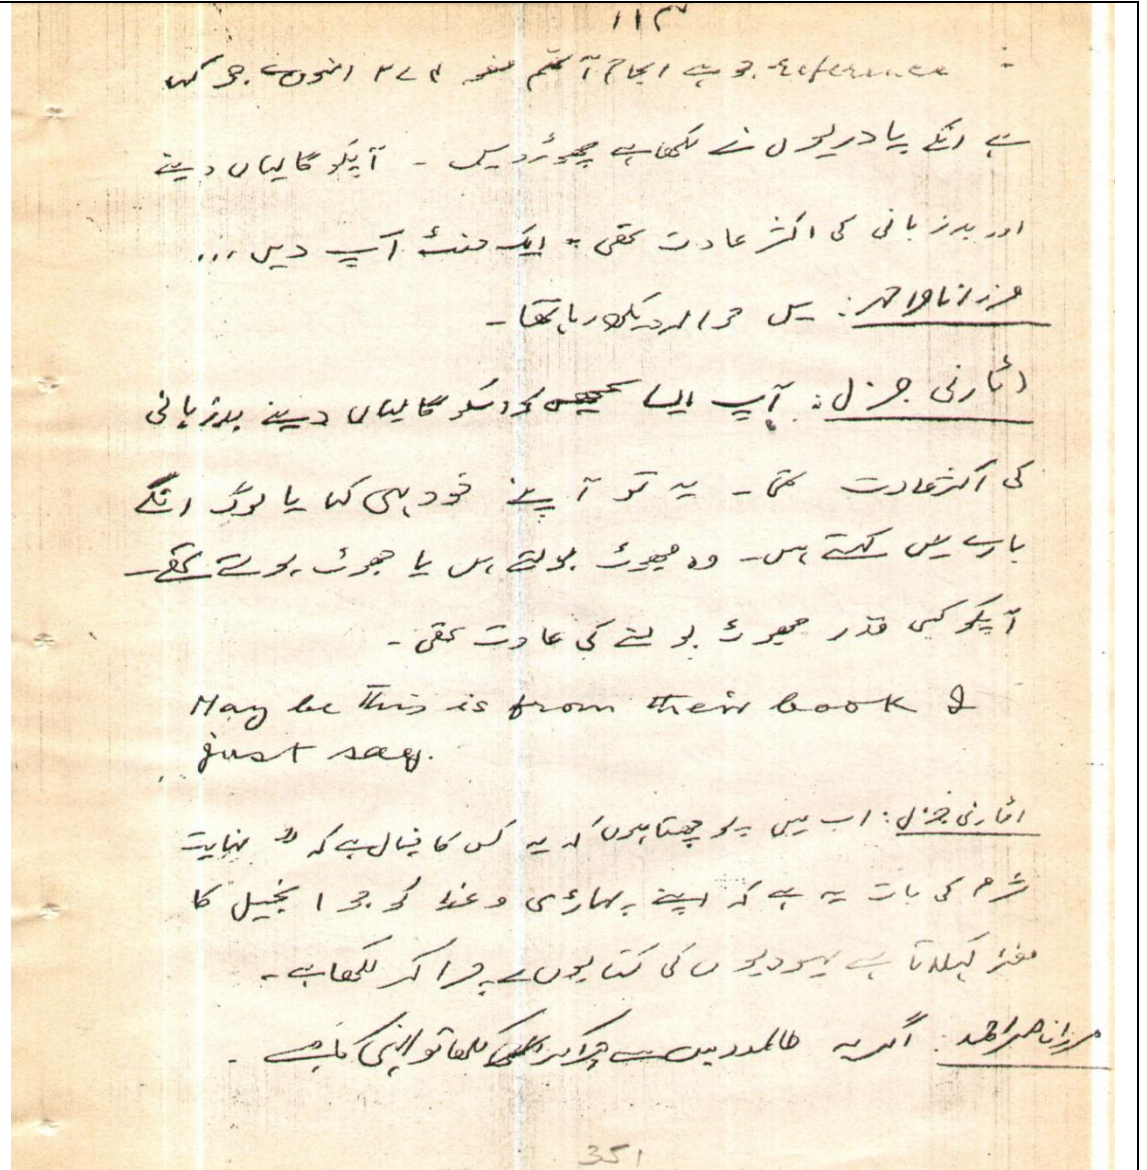 ۱۱۴
Reference جو ہے انجام آتھم صفحہ ۲۷۴ انہوں نے جو کہا
ہے انکے پادریوں نے لکھا ہے چھوڑ دیں ۔ آپکو گالیاں دینے
اور بدزبانی کی اکثر عادت تھی ۔ ایک منٹ آپ دیں ...
مرزا ناصر احمد : میں حوالہ دیکھ رہا تھا ۔
اٹارنی جنرل : آپ ایسا کہ اسکو گالیاں دینے بدزبانی
کی اکثر عادت تھی ۔ یہ تو آپ نے خود ہی کہا یا لوگ انکے
بارے میں کہتے ہیں ۔ وہ جھوٹ بولتے ہیں یا جھوٹ بولتے تھے ۔
آپکو کسی قدر جھوٹ بولنے کی عادت تھی ۔
May be this is from their book I
just say.
اٹارنی جنرل : اب میں پوچھتا ہوں کہ یہ کس کا خیال ہے کہ " نہایت
شرم کی بات یہ ہے کہ اپنے پہاڑی وعظ کو جو انجیل کا
مغز کہلاتا ہے یہودیوں کی کتابوں سے چرا کر لکھا ہے ۔
مرزا ناصر احمد : اگر یہ طالمود میں سے چرا کر لکھا تو
351